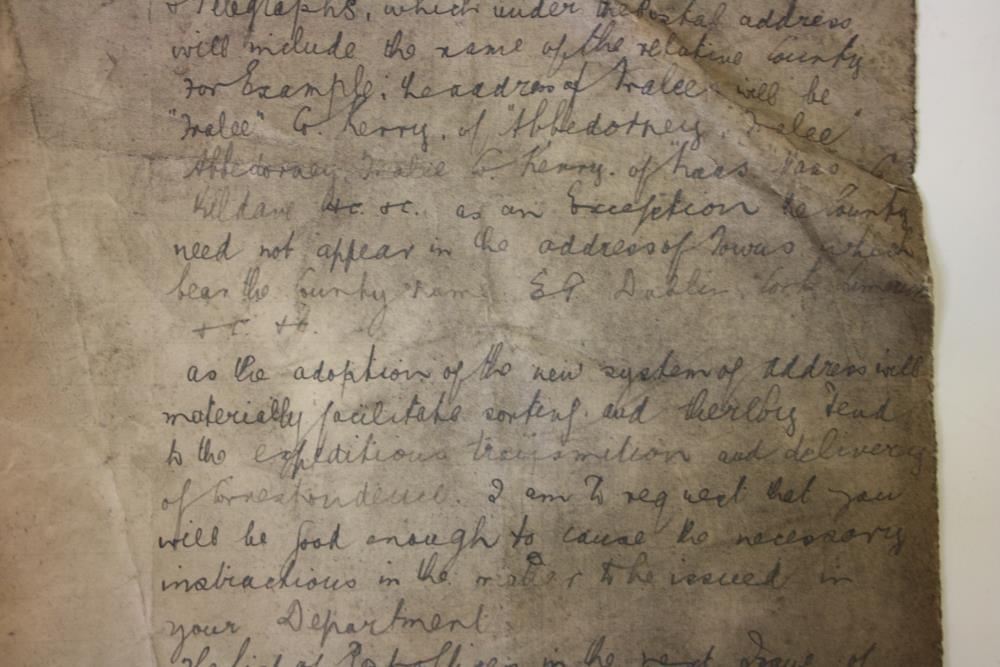 & Telegraphs, which under the Postal address
will include the name of the relative County
For Example; the address of Tralee will be
"Tralee" Co. Kerry. of "Abbedorney, Tralee"
Abbedorney, Tralee Co. Kerry. of "Naas" Naas Co
Kildare &c. &c. as an Exception the County
need not appear in the address of Towns which
bear the County name EG. Dublin, Cork
&c. &c.
as the adoption of the new system of address will
materially facilitate sorting and thereby tend
to the expeditious transmition and delivery
of Correspondence. I am to request that you
will be good enough to cause the necessary
instructions in the matter to be issued in
your Department
The list of in the next Issue of